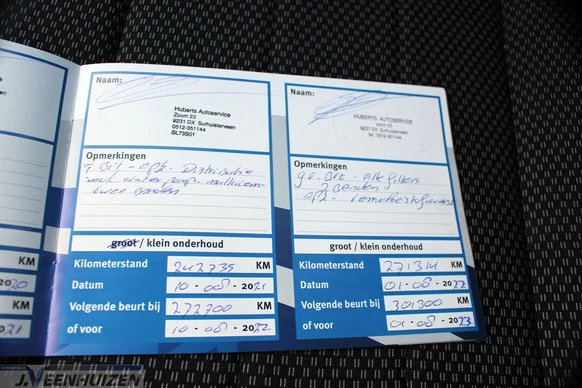 Naam:
Huberts Autoservice
Zoom 23
9231 DX Surhuisterveen
0512-351144
SL73S01
Opmerkingen
Bit - apk - Distributie
twee banden
groot / klein onderhoud
Kilometerstand 242735 KM
Datum 10-08-2021
Volgende beurt bij 272700 KM
of voor 10-08-2022
Naam:
HUBERTS AUTOSERVICE
zoom 23
9231 DX Surhuisterveen
tel. 0512-351144
Opmerkingen
gr. Bit - alle filters
2 Banden
apk -
groot / klein onderhoud
Kilometerstand 271314 KM
Datum 01-08-2022
Volgende beurt bij 301300 KM
of voor 01-08-2023
KM
2020
KM
2021
J.VEENHUIZEN